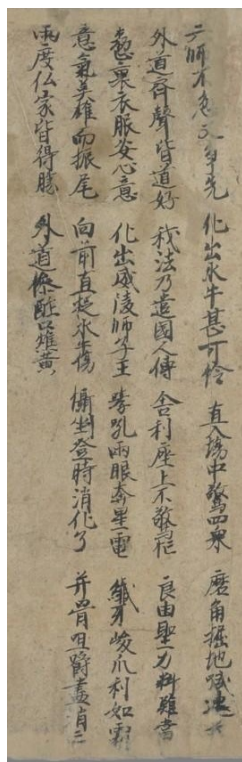 六師不忿又爭先 化出水牛甚可怜 直入場中驚四衆 磨角掘地喊連天
外道齊聲皆道好 我法乃遣國人傳 舍利座上不驚 良由聖力料難當
整裹衣服安心意 化出威陵師子王 哮吼兩眼奔星電 纖牙峻爪利如霜
意氣英雄而振尾 向前直擬水牛傷 懾剉登時消化了 并骨咀嚼盡消亡
兩度仏家皆得勝 外道黃